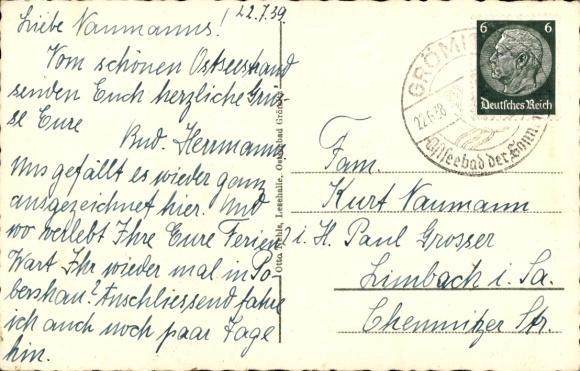 22.7.39
Liebe Naumanns!
Vom schönen Ostseestrand
senden Euch herzliche Grüs-
se Eure
Herrmanns
Uns gefällt es wieder ganz
ausgezeichnet hier. Und
wo verlebt Ihre Eure Ferien?
Wart Ihr wieder mal in Po-
bershau? Anschliessend fahre
ich auch noch paar Tage
hin.
Lesehalle, Ostseebad Grömitz
GRÖMITZ
22.6.38
Ostseebad der Sonn
6 6
Deutsches Reich
Fam.
Kurt Naumann
i. H. Paul Grosser
Limbach i. Sa.
Chemnitzer Str.